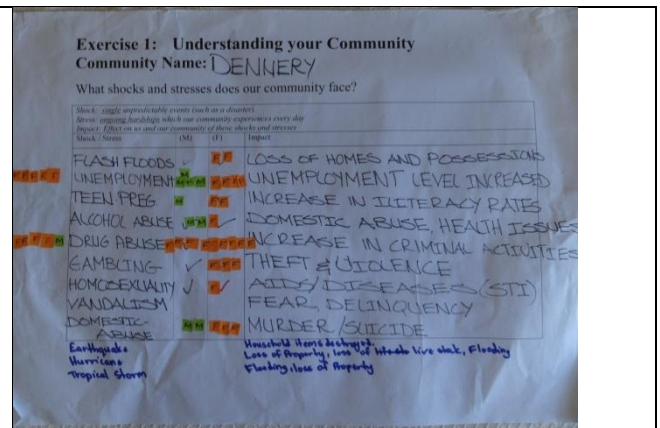 Exercise 1: Understanding your Community
Community Name: DENNERY
What shocks and stresses does our community face?
Shock: single unpredictable events (such as a disaster)
Stress: ongoing hardships which our community experiences every day
Impact: Effect on us and our community of these shocks and stresses
Shock / Stress (M) (F) Impact
FLASH FLOODS ✓ F F LOSS OF HOMES AND POSSESSIONS
UNEMPLOYMENT UNEMPLOYMENT LEVEL INCREASED
TEEN PREG M INCREASE IN ILITERACY RATES
ALCOHOL ABUSE ✓ DOMESTIC ABUSE, HEALTH ISSUES
DRUG ABUSE INCREASE IN CRIMINAL ACTIVITIES
GAMBLING ✓ THEFT & VIOLENCE
HOMOSEXUALITY ✓ F ✓ AIDS/DISEASES (STI)
VANDALISM FEAR, DELINQUENCY
DOMESTIC ABUSE M M F F F MURDER/SUICIDE
Earthquake Household items destroyed.
Hurricane Loss of Property, loss of live stok, Flooding
Tropical Storm Flooding, loss of Property